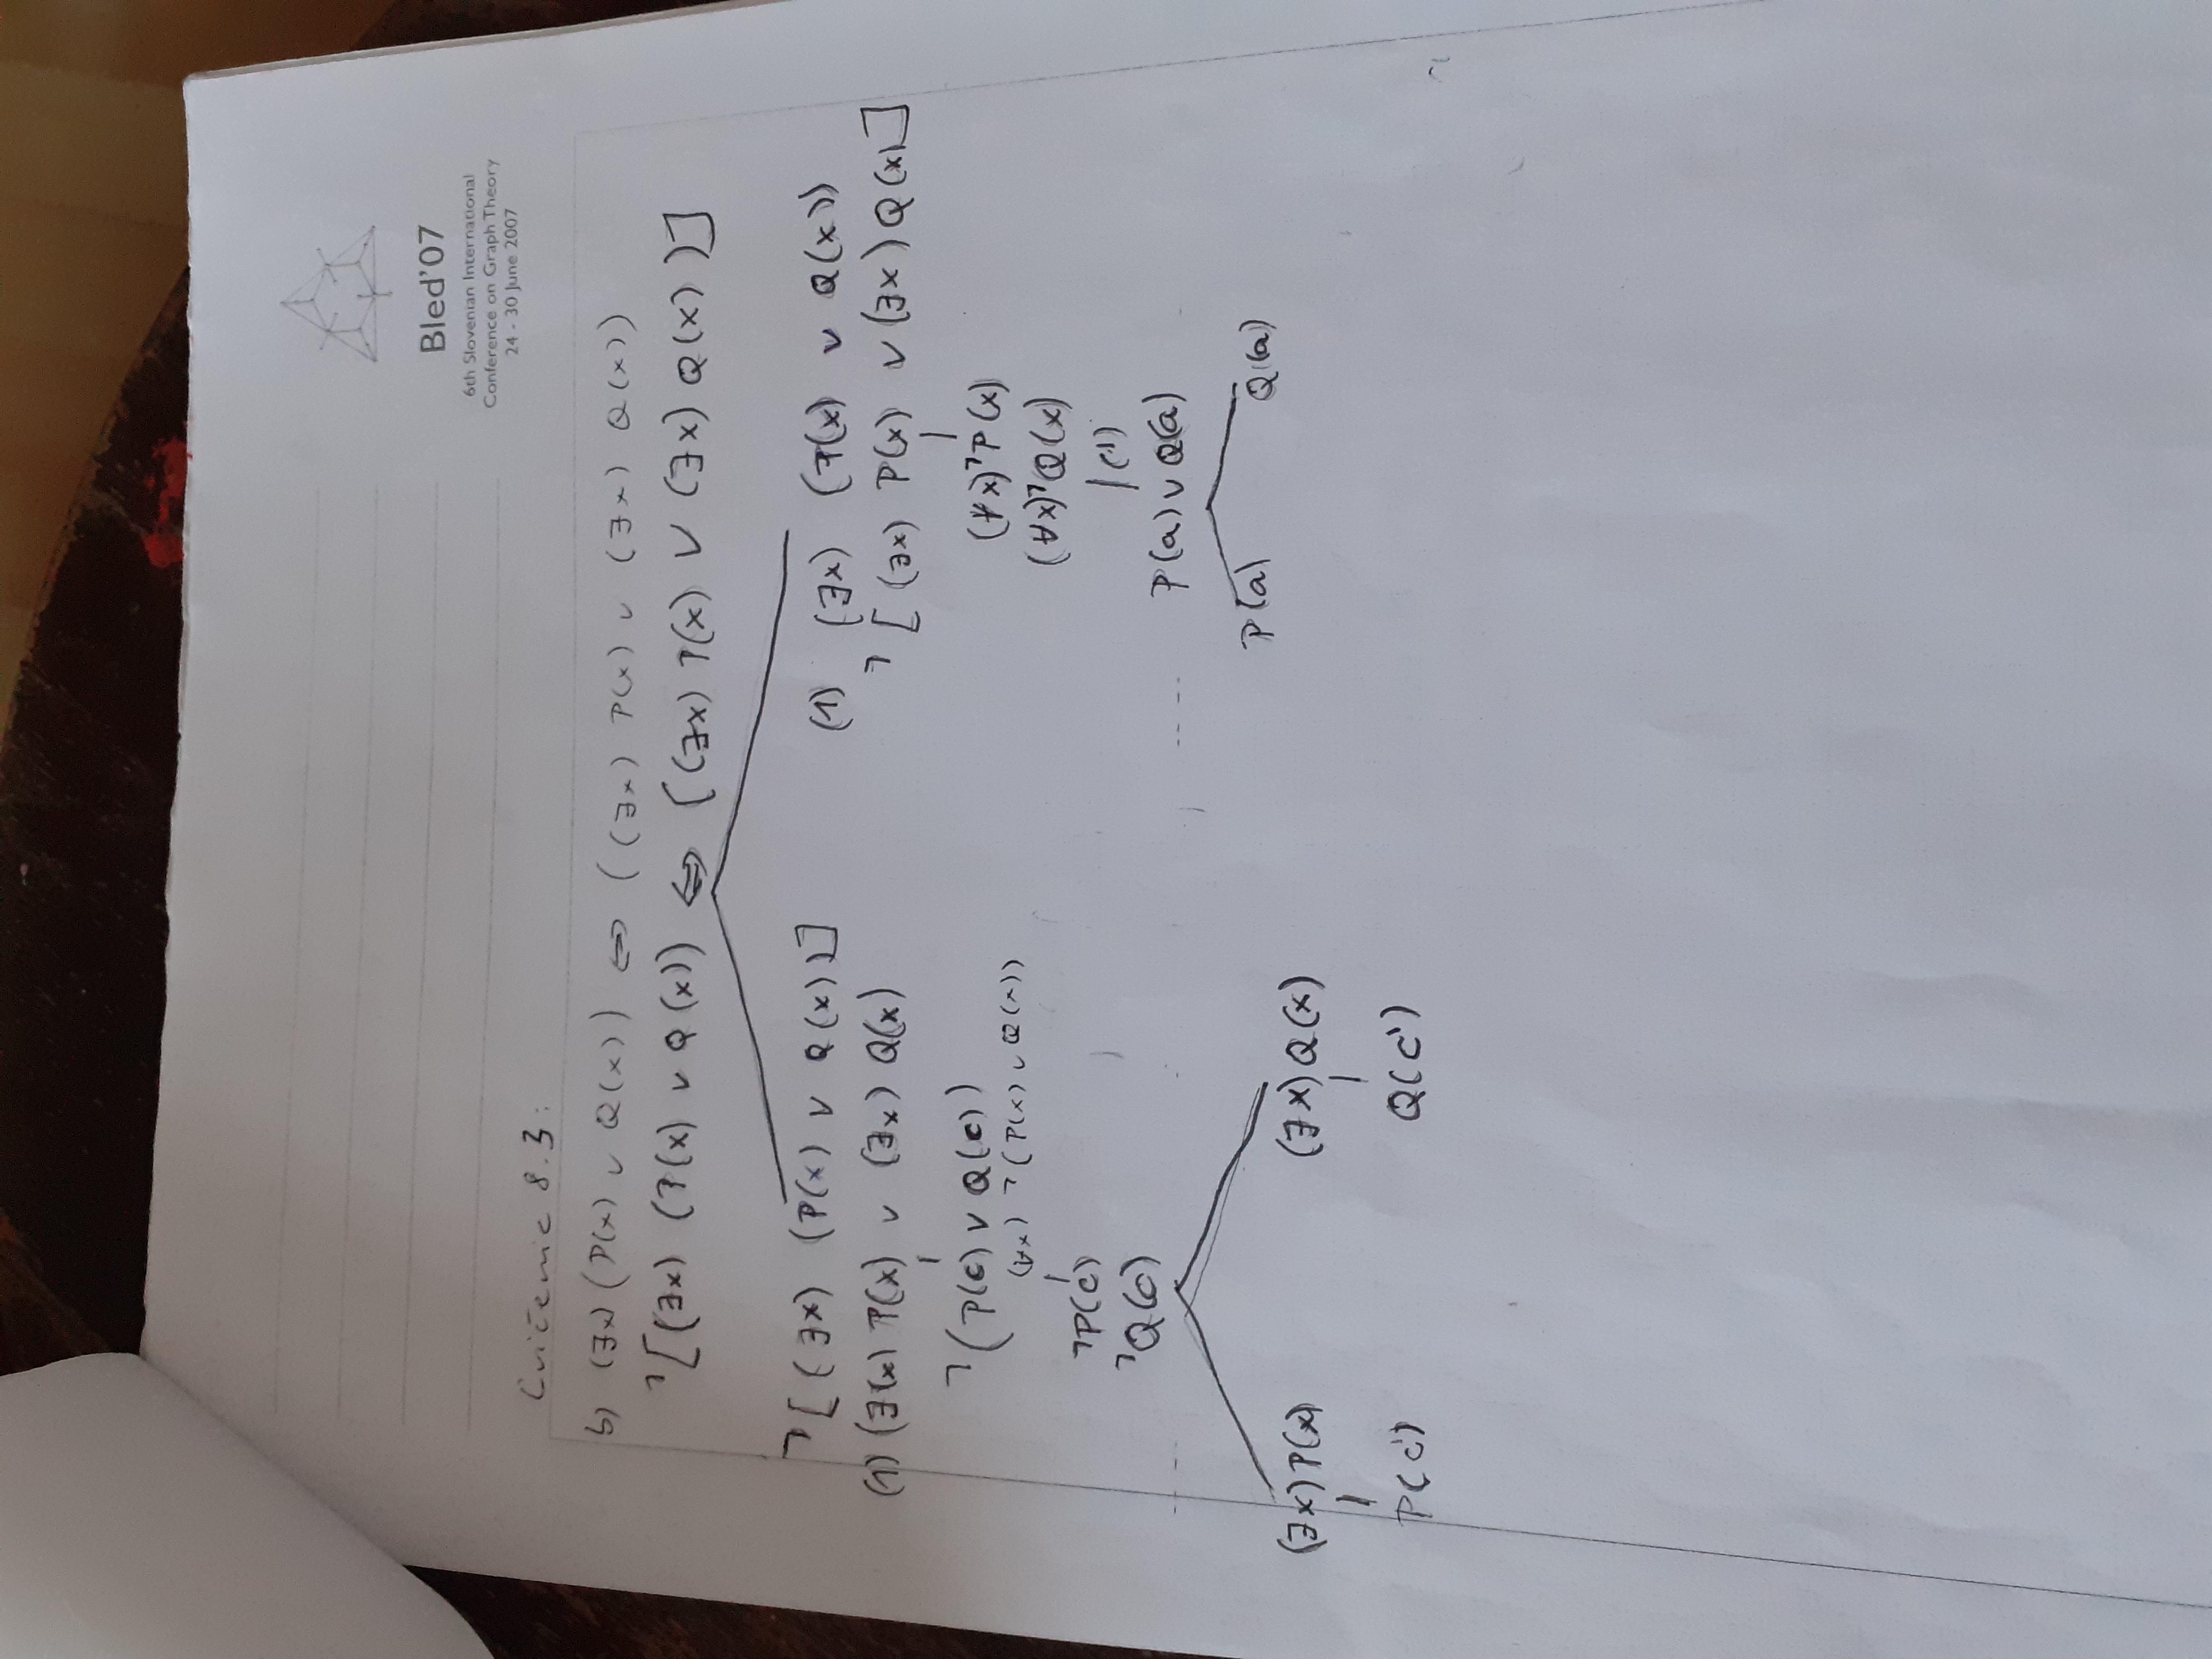 Bled'07
6th Slovenian International
Conference on Graph Theory
24 - 30 June 2007
Cvičenie 8.3:
b) (∃x)(P(x) ∨ Q(x)) ⇔ ((∃x) P(x) ∨ (∃x) Q(x))
¬[(∃x) (P(x) ∨ Q(x)) ⇔ [(∃x) P(x) ∨ (∃x) Q(x))]
¬[(∃x) (P(x) ∨ Q(x))]
(1) (∃(x) P(x) ∨ (∃x) Q(x)
¬(P(c) ∨ Q(c))
(∀x) ¬(P(x) ∨ Q(x))
¬P(c)
¬Q(c)
(∃x) P(x)
P(c')
(∃x) Q(x)
Q(c')
(1) (∃x) (P(x) ∨ Q(x))
¬[(∃x) P(x) ∨ (∃x) Q(x)]
(∀x)¬P(x)
(∀x)¬Q(x)
(1)
P(a) ∨ Q(a)
P(a) Q(a)